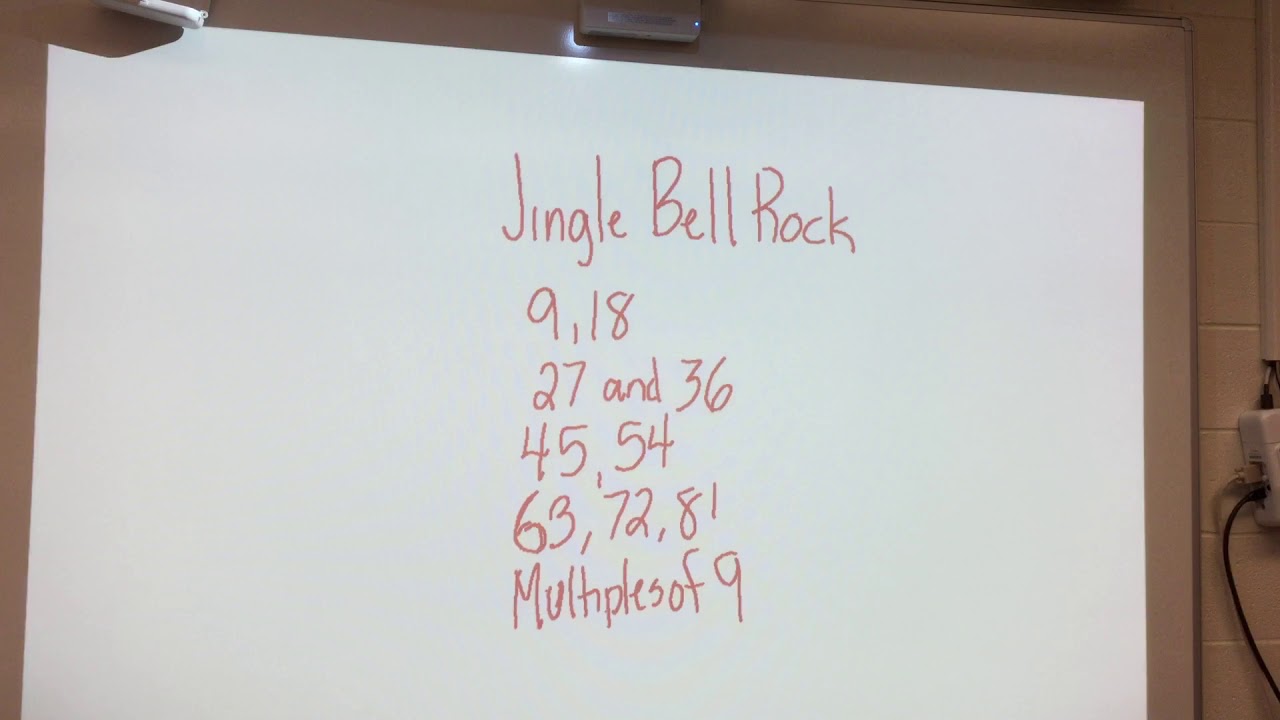 Jingle Bell Rock
9, 18
27 and 36
45, 54
63, 72, 81
Multiples of 9